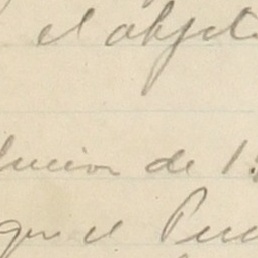 el objet
lucion de 1
el Pue